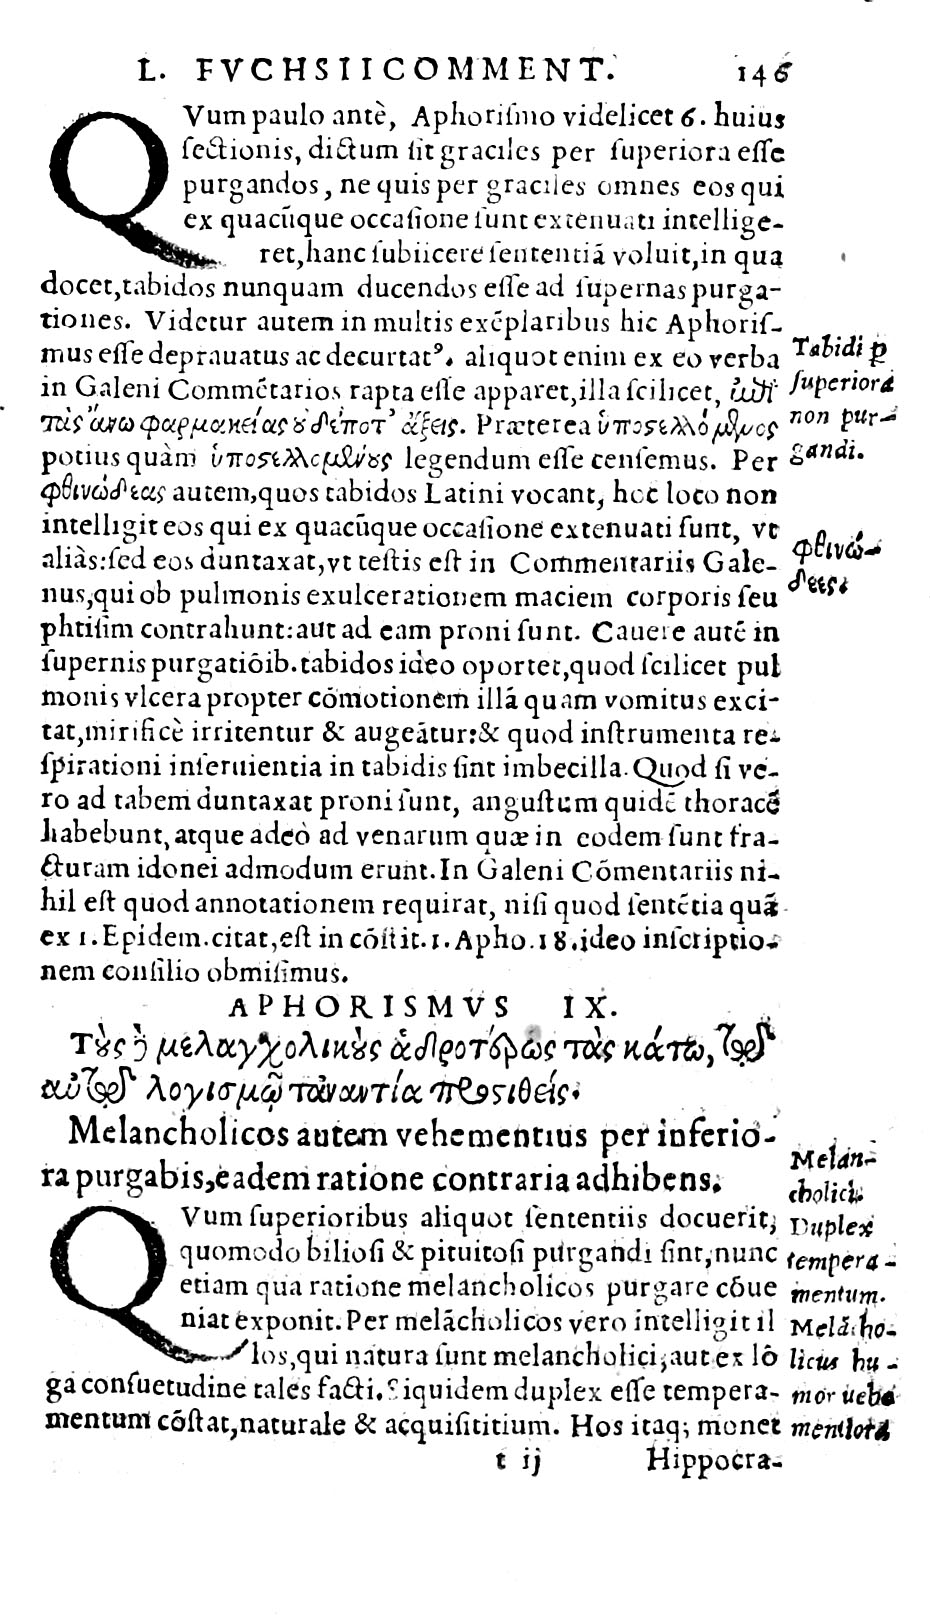 L. FVCHSII COMMENT. 146
QVum paulo antè, Aphoriſmo videlicet 6. huius
ſectionis, dictum ſit graciles per ſuperiora eſſe
purgandos, ne quis per graciles omnes eos qui
ex quacũque occaſione ſunt extenuati intellige-
ret, hanc ſubiicere ſententiã voluit, in qua
docet, tabidos nunquam ducendos eſſe ad ſupernas purga-
tiones. Videtur autem in multis exẽplaribus hic Aphoriſ-
mus eſſe deprauatus ac decurtatꝰ. aliquot enim ex eo verba
in Galeni Commẽtarios rapta eſſe apparet, illa ſcilicet, ἐπὶ
τὰς ἄνω φαρμακείας ȣ́δέποτ’ ἄξεις. Præterea ὑποστελλόμενος
potius quàm ὑποστελλομένȣς legendum eſſe cenſemus. Per
φθινώδεας autem, quos tabidos Latini vocant, hoc loco non
intelligit eos qui ex quacũque occaſione extenuati ſunt, vt
aliàs: ſed eos duntaxat, vt teſtis eſt in Commentariis Gale-
nus, qui ob pulmonis exulcerationem maciem corporis ſeu
phtiſim contrahunt: aut ad eam proni ſunt. Cauere autẽ in
ſupernis purgatiõib. tabidos ideo oportet, quod ſcilicet pul
monis vlcera propter cõmotionem illã quam vomitus exci-
tat, mirificè irritentur & augeãtur: & quod inſtrumenta re-
ſpirationi inſeruientia in tabidis ſint imbecilla. Quod ſi ve-
ro ad tabem duntaxat proni ſunt, anguſtum quidẽ thoracẽ
habebunt, atque adeò ad venarum quæ in eodem ſunt fra-
cturam idonei admodum erunt. In Galeni Cõmentariis ni-
hil eſt quod annotationem requirat, niſi quod ſentẽtia quã
ex 1. Epidem. citat, eſt in cõſtit. 1. Apho. 18. ideo inſcriptio-
nem conſilio obmiſimus.
Tabidi ꝑ
ſuperiora
non pur-
gandi.
φθινώ-
δεες.
APHORISMVS IX.
Τȣ̀ς ἢ μελαγχολικȣ̀ς ἁδροτέρως τὰς κάτω, τῷ
αὐτῷ λογισμῷ τἀναντία προστιθείς.
Melancholicos autem vehementius per inferio-
ra purgabis, eadem ratione contraria adhibens.
QVum ſuperioribus aliquot ſententiis docuerit,
quomodo bilioſi & pituitoſi purgandi ſint, nunc
etiam qua ratione melancholicos purgare cõue
niat exponit. Per melãcholicos vero intelligit il
los, qui natura ſunt melancholici, aut ex lõ
ga conſuetudine tales facti. Siquidem duplex eſſe tempera-
mentum cõſtat, naturale & acquiſititium. Hos itaq; monet
Melan-
cholici.
Duplex
tempera-
mentum.
Melãcho-
licus hu-
mor uehe
mentiora
t ij Hippocra-